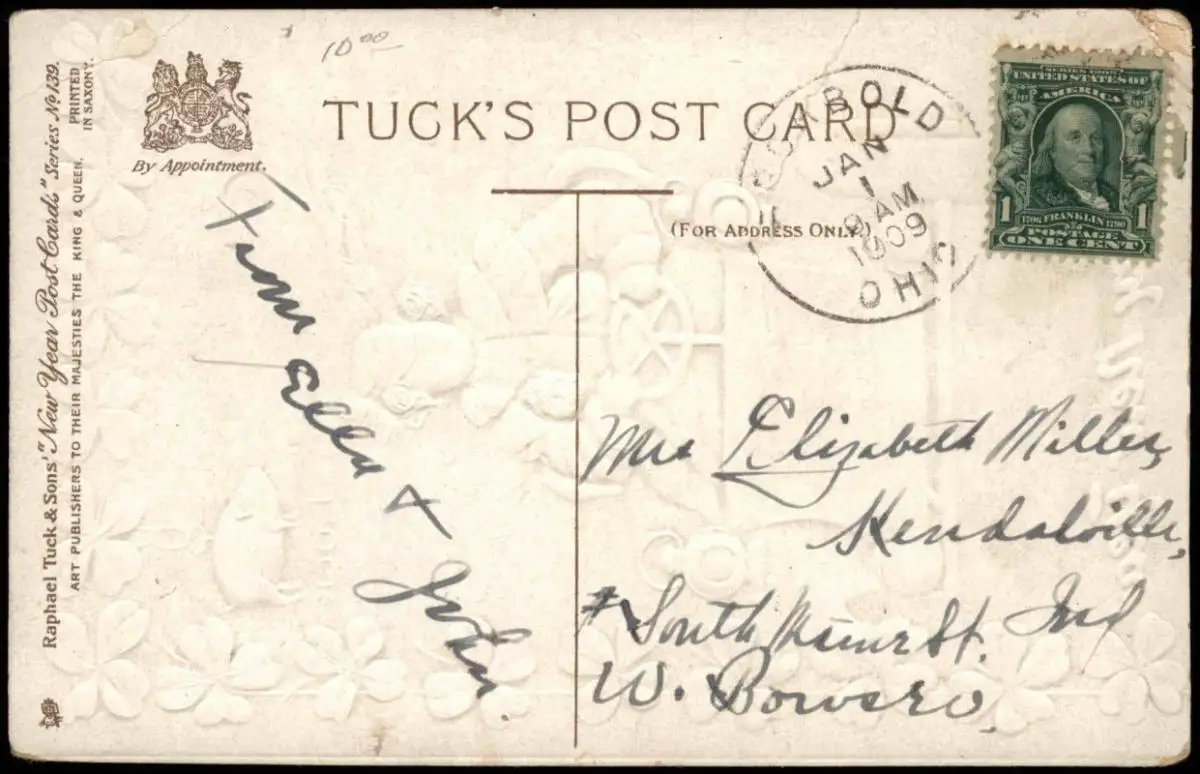 10 00
TUCK'S POST CARD
By Appointment.
(FOR ADDRESS ONLY.)
Raphael Tuck & Sons' "New Year Post Cards" Series No 139.
ART PUBLISHERS TO THEIR MAJESTIES THE KING & QUEEN.
PRINTED
IN SAXONY.
ARCHBOLD
JAN
1
9 AM
1909
OHIO
SERIES 1902
UNITED STATES OF
AMERICA
1 1706 FRANKLIN 1790 1
POSTAGE
ONE CENT
From
Ella
+
John.
Mrs Elizabeth Miller,
Kendalville,
South St. Ind
W. Bowsero